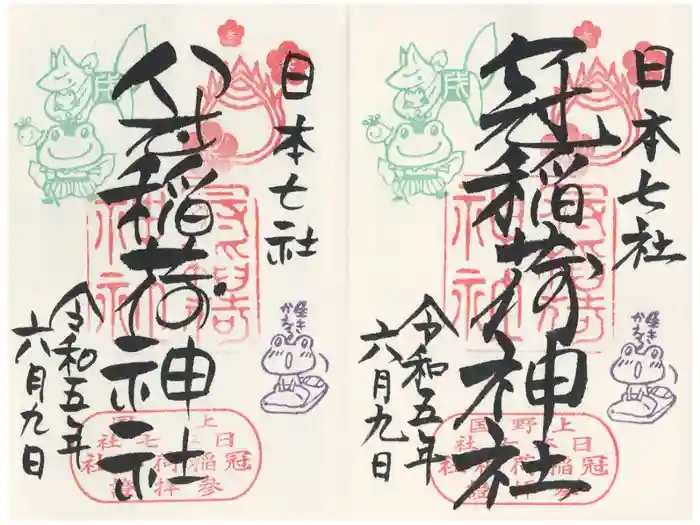 日本七社
八坂稲荷神社
令和五年
六月九日
生きかえる
上野国
日本七社
冠稲荷神社
参拝證
日本七社
冠稲荷神社
令和五年
六月九日
生きかえる
上野国
日本七社
冠稲荷神社
参拝證